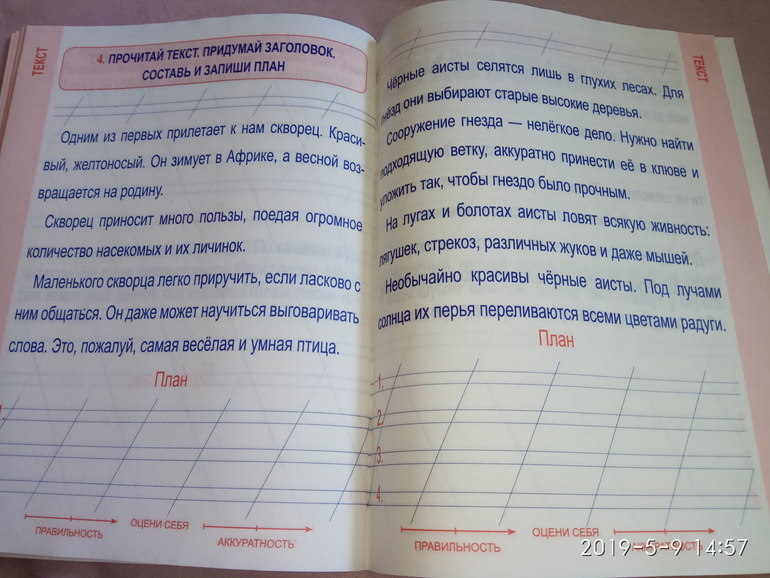 ТЕКСТ
4. ПРОЧИТАЙ ТЕКСТ. ПРИДУМАЙ ЗАГОЛОВОК.
СОСТАВЬ И ЗАПИШИ ПЛАН
Одним из первых прилетает к нам скворец. Краси-
вый, желтоносый. Он зимует в Африке, а весной воз-
вращается на родину.
Скворец приносит много пользы, поедая огромное
количество насекомых и их личинок.
Маленького скворца легко приручить, если ласково с
ним общаться. Он даже может научиться выговаривать
слова. Это, пожалуй, самая весёлая и умная птица.
План
ПРАВИЛЬНОСТЬ
ОЦЕНИ СЕБЯ
АККУРАТНОСТЬ
ТЕКСТ
Чёрные аисты селятся лишь в глухих лесах. Для
гнёзд они выбирают старые высокие деревья.
Сооружение гнезда — нелёгкое дело. Нужно найти
подходящую ветку, аккуратно принести её в клюве и
уложить так, чтобы гнездо было прочным.
На лугах и болотах аисты ловят всякую живность:
лягушек, стрекоз, различных жуков и даже мышей.
Необычайно красивы чёрные аисты. Под лучами
солнца их перья переливаются всеми цветами радуги.
План
1.
2.
3.
4.
ПРАВИЛЬНОСТЬ
ОЦЕНИ СЕБЯ
АККУРАТНОСТЬ
2019-5-9 14:57